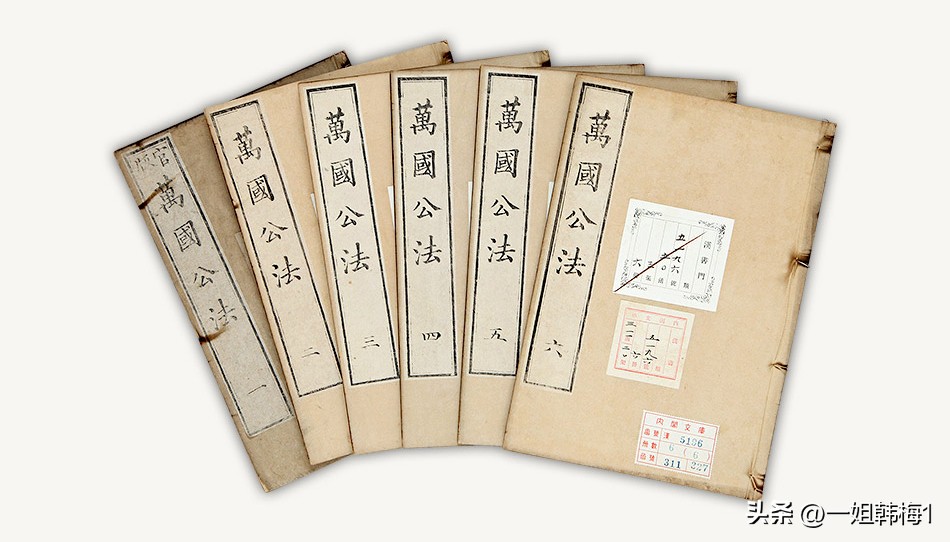 官版
萬國公法
一
萬國公法
二
萬國公法
三
萬國公法
四
萬國公法
五
萬國公法
六
漢書門
內閣文庫
番號 漢 5196
冊數 6 (6)
函號 311 227
头条 @一姐韩梅1